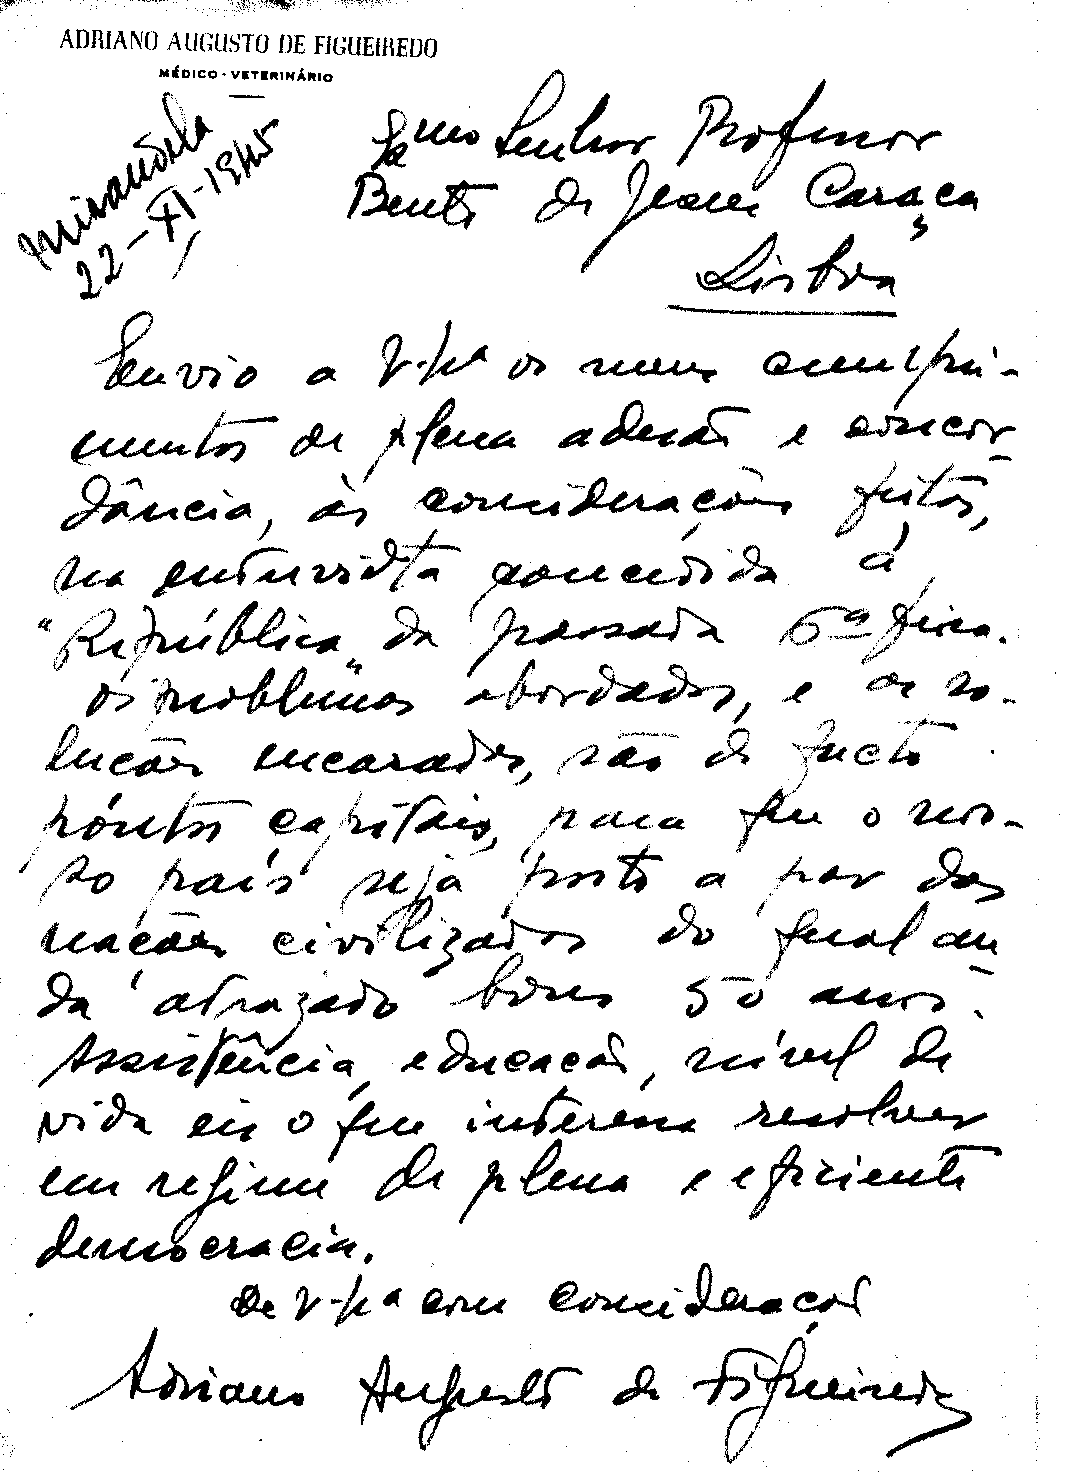 ADRIANO AUGUSTO DE FIGUEIREDO
MÉDICO-VETERINÁRIO
Mirandela
22-XI-1945
Exmo Senhor Professor
Bento de Jesus Caraça
Lisboa
Envio a V. Ha os meus cumpri-
mentos de plena adesão e concor-
dância, às considerações feitas,
na entrevista concedida á
"República" da passada 6ª feira.
Os problemas abordados, e as so-
luções encaradas, são de facto
pontos capitais, para que o nos-
so país seja posto a par das
nações civilizadas do qual an-
da atrazado bons 50 anos.
Assistência, educação, nível de
vida eis o que interessa resolver
em regime de plena e eficiente
democracia.
De V. Ha com consideração
Adriano Augusto de Figueiredo